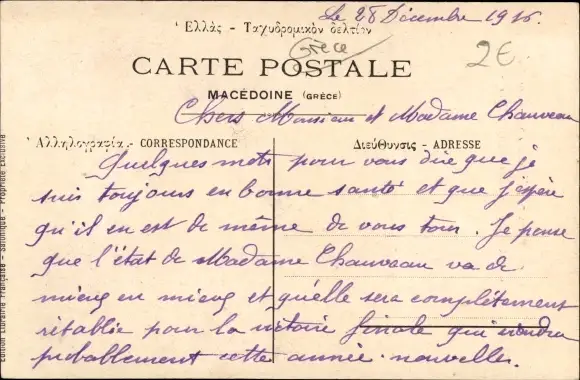 Le 28 Décembre 1916.
Ἑλλάς - Ταχυδρομικὸν δελτίον
Grèce
2€
CARTE POSTALE
MACÉDOINE (GRÈCE)
Chers Monsieur et Madame Chauveau
Ἀλληλογραφία - CORRESPONDANCE
Διεύθυνσις - ADRESSE
Quelques mots pour vous dire que je
suis toujours en bonne santé et que j'espère
qu'il en est de même de vous tous. Je pense
que l'état de Madame Chauveau va de
mieux en mieux et qu'elle sera complètement
rétablie pour la victoire finale qui viendra
probablement cette année nouvelle.
Edition Librairie Française - Salonique - Propriété Exclusive